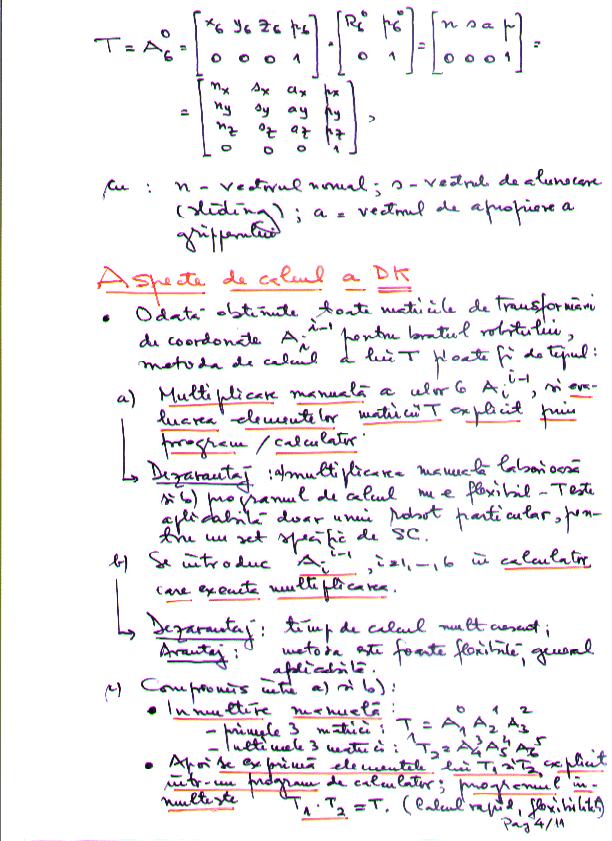 T = A₆⁰ = [x₆ y₆ z₆ p₆; 0 0 0 1] · [R₆⁰ p₆⁰; 0 1] = [n s a p; 0 0 0 1] =
= [n_x s_x a_x p_x; n_y s_y a_y p_y; n_z s_z a_z p_z; 0 0 0 1] ,
cu : n – vectorul normal ; s – vectorul de alunecare
(sliding) ; a = vectorul de apropiere a
gripperului
Aspecte de calcul a DK
• Odată obținute toate matricile de transformări
de coordonate A_i^{i-1} pentru brațul robotului,
metoda de calcul a lui T poate fi de tipul:
a) Multiplicare manuală a celor 6 A_i^{i-1}, și eva-
luarea elementelor matricii T explicit prin
program / calculator.
Dezavantaj : a) multiplicarea manuală laborioasă
și b) programul de calcul nu e flexibil – T este
aplicabilă doar unui robot particular, pen-
tru un set specific de SC.
b) Se introduc A_i^{i-1} , i=1,–,6 în calculator
care execută multiplicarea.
Dezavantaj : timp de calcul mult crescut ;
Avantaj : metoda este foarte flexibilă, general
aplicabilă.
c) Compromis între a) și b) :
• Înmulțire manuală :
– primele 3 matrici : T₁ = A₁⁰ A₂¹ A₃²
– ultimele 3 matrici : T₂ = A₄³ A₅⁴ A₆⁵
• Apoi se exprimă elementele lui T₁ și T₂ explicit
într-un program de calculator ; programul în-
mulțește T₁ · T₂ = T. (Calcul rapid, flexibilitate)
Pag 4/11